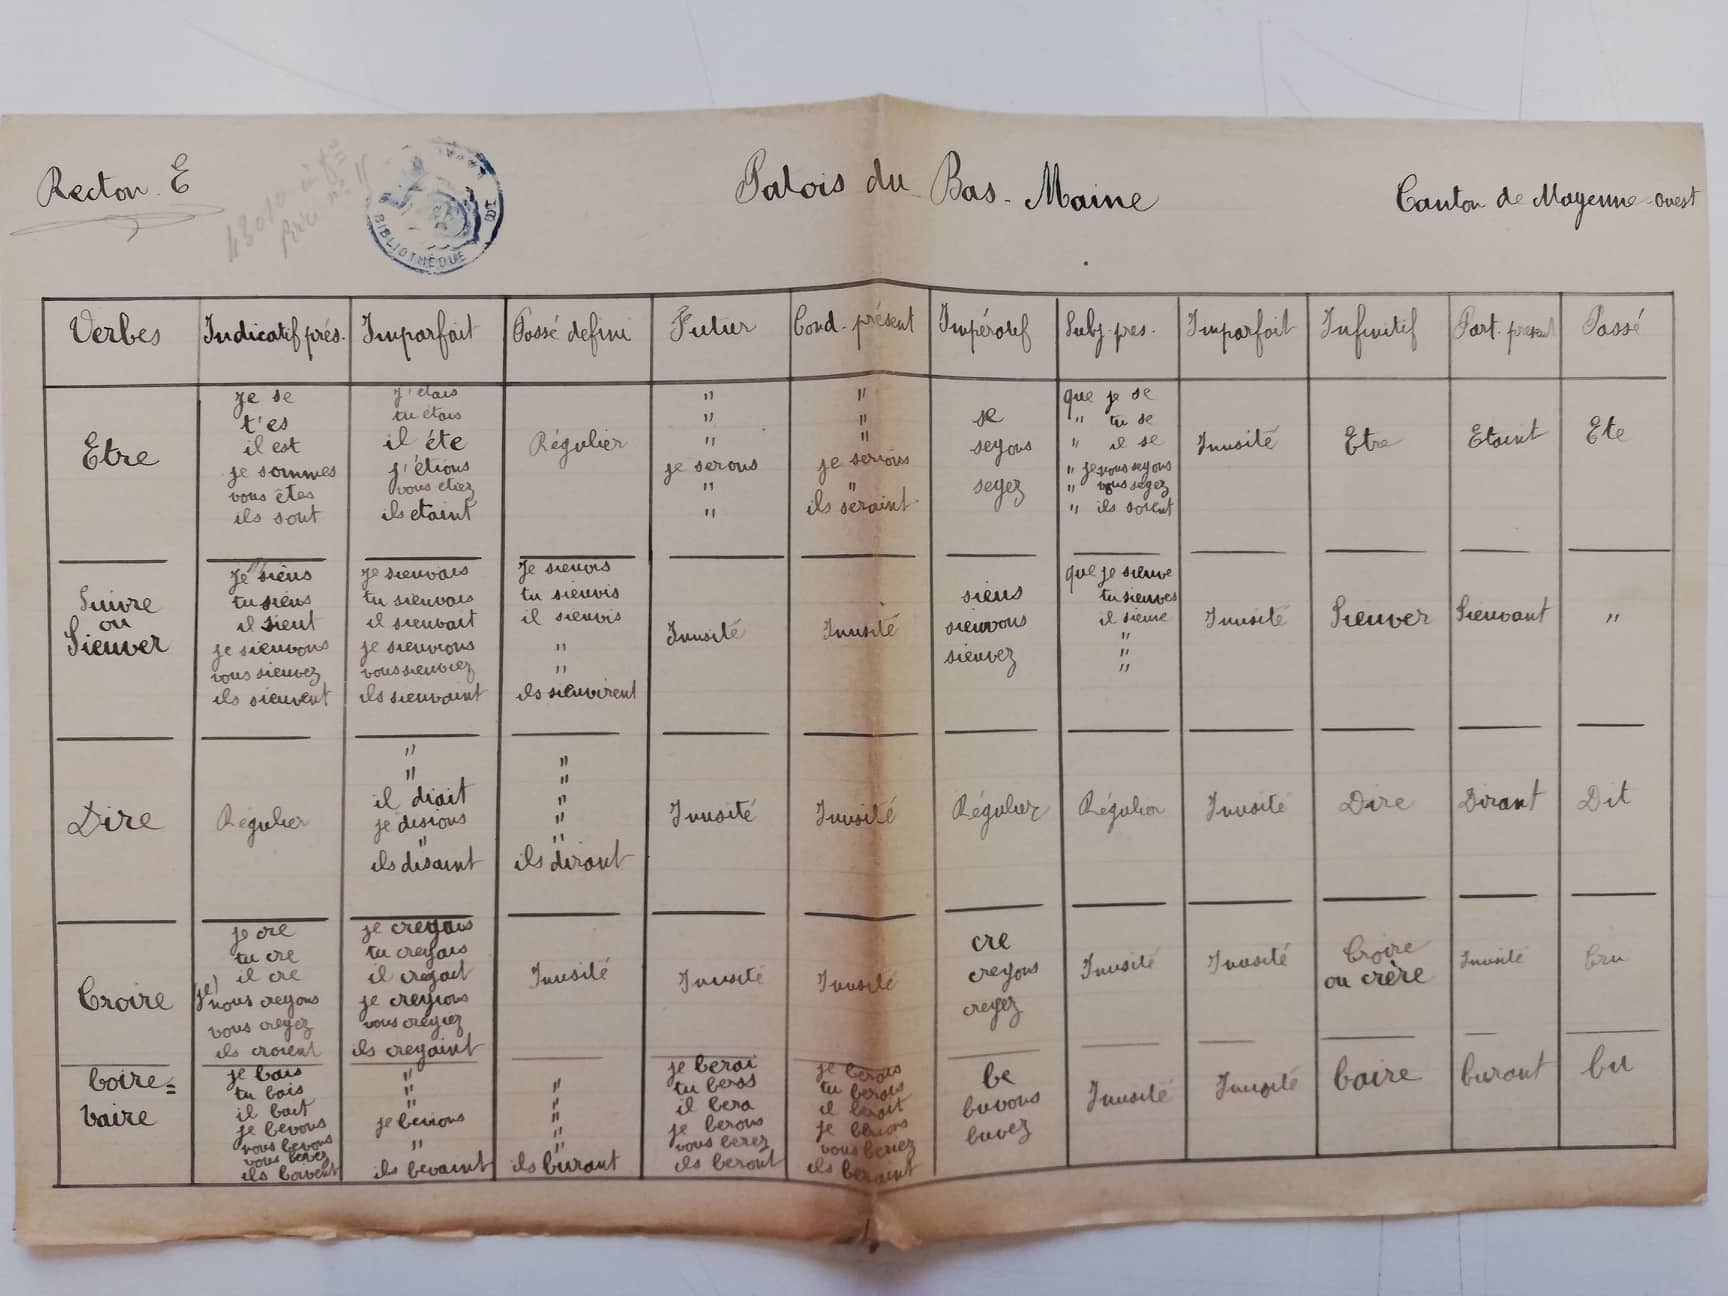 Recton. E
Patois du Bas-Maine
Canton de Mayenne-ouest
BIBLIOTHÈQUE
Verbes
Indicatif prés.
Imparfait
Passé défini
Futur
Cond. présent
Impératif
Subj. pres.
Imparfait
Infinitif
Part. présent
Passé
Etre
je se
t'es
il est
je sommes
vous êtes
ils sont
j'étais
tu étais
il éte
j'étions
vous étiez
ils etaint
Régulier
"
"
"
je serons
"
"
"
"
"
je serions
"
ils seraint
se
seyons
seyez
que je se
" tu se
" il se
" je nous seyons
" vous seyez
" ils soient
Inusité
Etre
Etaint
Ete
Suivre
ou
Sieuver
je sieus
tu sieus
il sieut
je sieuvons
vous sieuvez
ils sieuvent
je sieuvais
tu sieuvais
il sieuvait
je sieuvions
vous sieuviez
ils sieuvaint
Je sieuvis
tu sieuvis
il sieuvis
"
"
ils sieuvirent
Inusité
Inusité
sieus
sieuvons
sieuvez
que je sieuve
tu sieuves
il sieuve
"
"
"
Inusité
Sieuver
Sieuvant
"
Dire
Régulier
"
"
il diait
je disions
"
ils disaint
"
"
"
"
"
ils dirant
Inusité
Inusité
Régulier
Régulier
Inusité
Dire
Dirant
Dit
Croire
je cre
tu cre
il cre
(je) nous creyons
vous creyez
ils croient
je creyais
tu creyais
il creyait
je creyions
vous creyiez
ils creyaint
Inusité
Inusité
Inusité
cre
creyons
creyez
Inusité
Inusité
Croire
ou crère
Inusité
Cru
boire =
baire
je bais
tu bais
il bait
je bevons
nous bevons
vous bevez
ils boivent
"
"
"
je bevions
"
ils bevaint
"
"
"
"
"
ils burant
je berai
tu beras
il bera
je berons
vous berez
ils beront
je berais
tu berais
il berait
je berions
vous beriez
ils beraint
be
buvons
buvez
Inusité
Inusité
baire
burant
bu